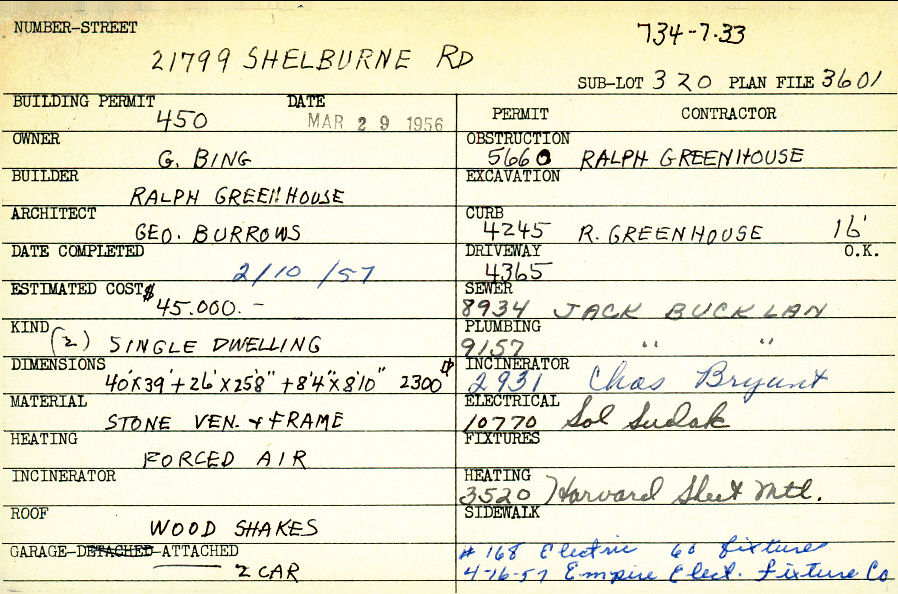 NUMBER-STREET
734-7-33
21799 SHELBURNE RD
SUB-LOT 320 PLAN FILE 3601
BUILDING PERMIT DATE
450 MAR 29 1956
OWNER
G. BING
BUILDER
RALPH GREENHOUSE
ARCHITECT
GEO. BURROWS
DATE COMPLETED
2/10/57
ESTIMATED COST $
45.000.-
KIND
(2) SINGLE DWELLING
DIMENSIONS
40'X39'+26'X25'8"+8'4"X8'10" 2300
MATERIAL
STONE VEN. + FRAME
HEATING
FORCED AIR
INCINERATOR
ROOF
WOOD SHAKES
GARAGE-DETACHED-ATTACHED
2 CAR
PERMIT CONTRACTOR
OBSTRUCTION
5660 RALPH GREENHOUSE
EXCAVATION
CURB
4245 R. GREENHOUSE 16'
DRIVEWAY O.K.
4365
SEWER
8934 JACK BUCKLAN
PLUMBING
9157 " "
INCINERATOR
2931 Chas Bryant
ELECTRICAL
10770 Sol Sudak
FIXTURES
HEATING
3520 Harvard Sheet Mtl.
SIDEWALK
# 168 Electric 60 fixtures
4-16-57 Empire Elect. Fixture Co